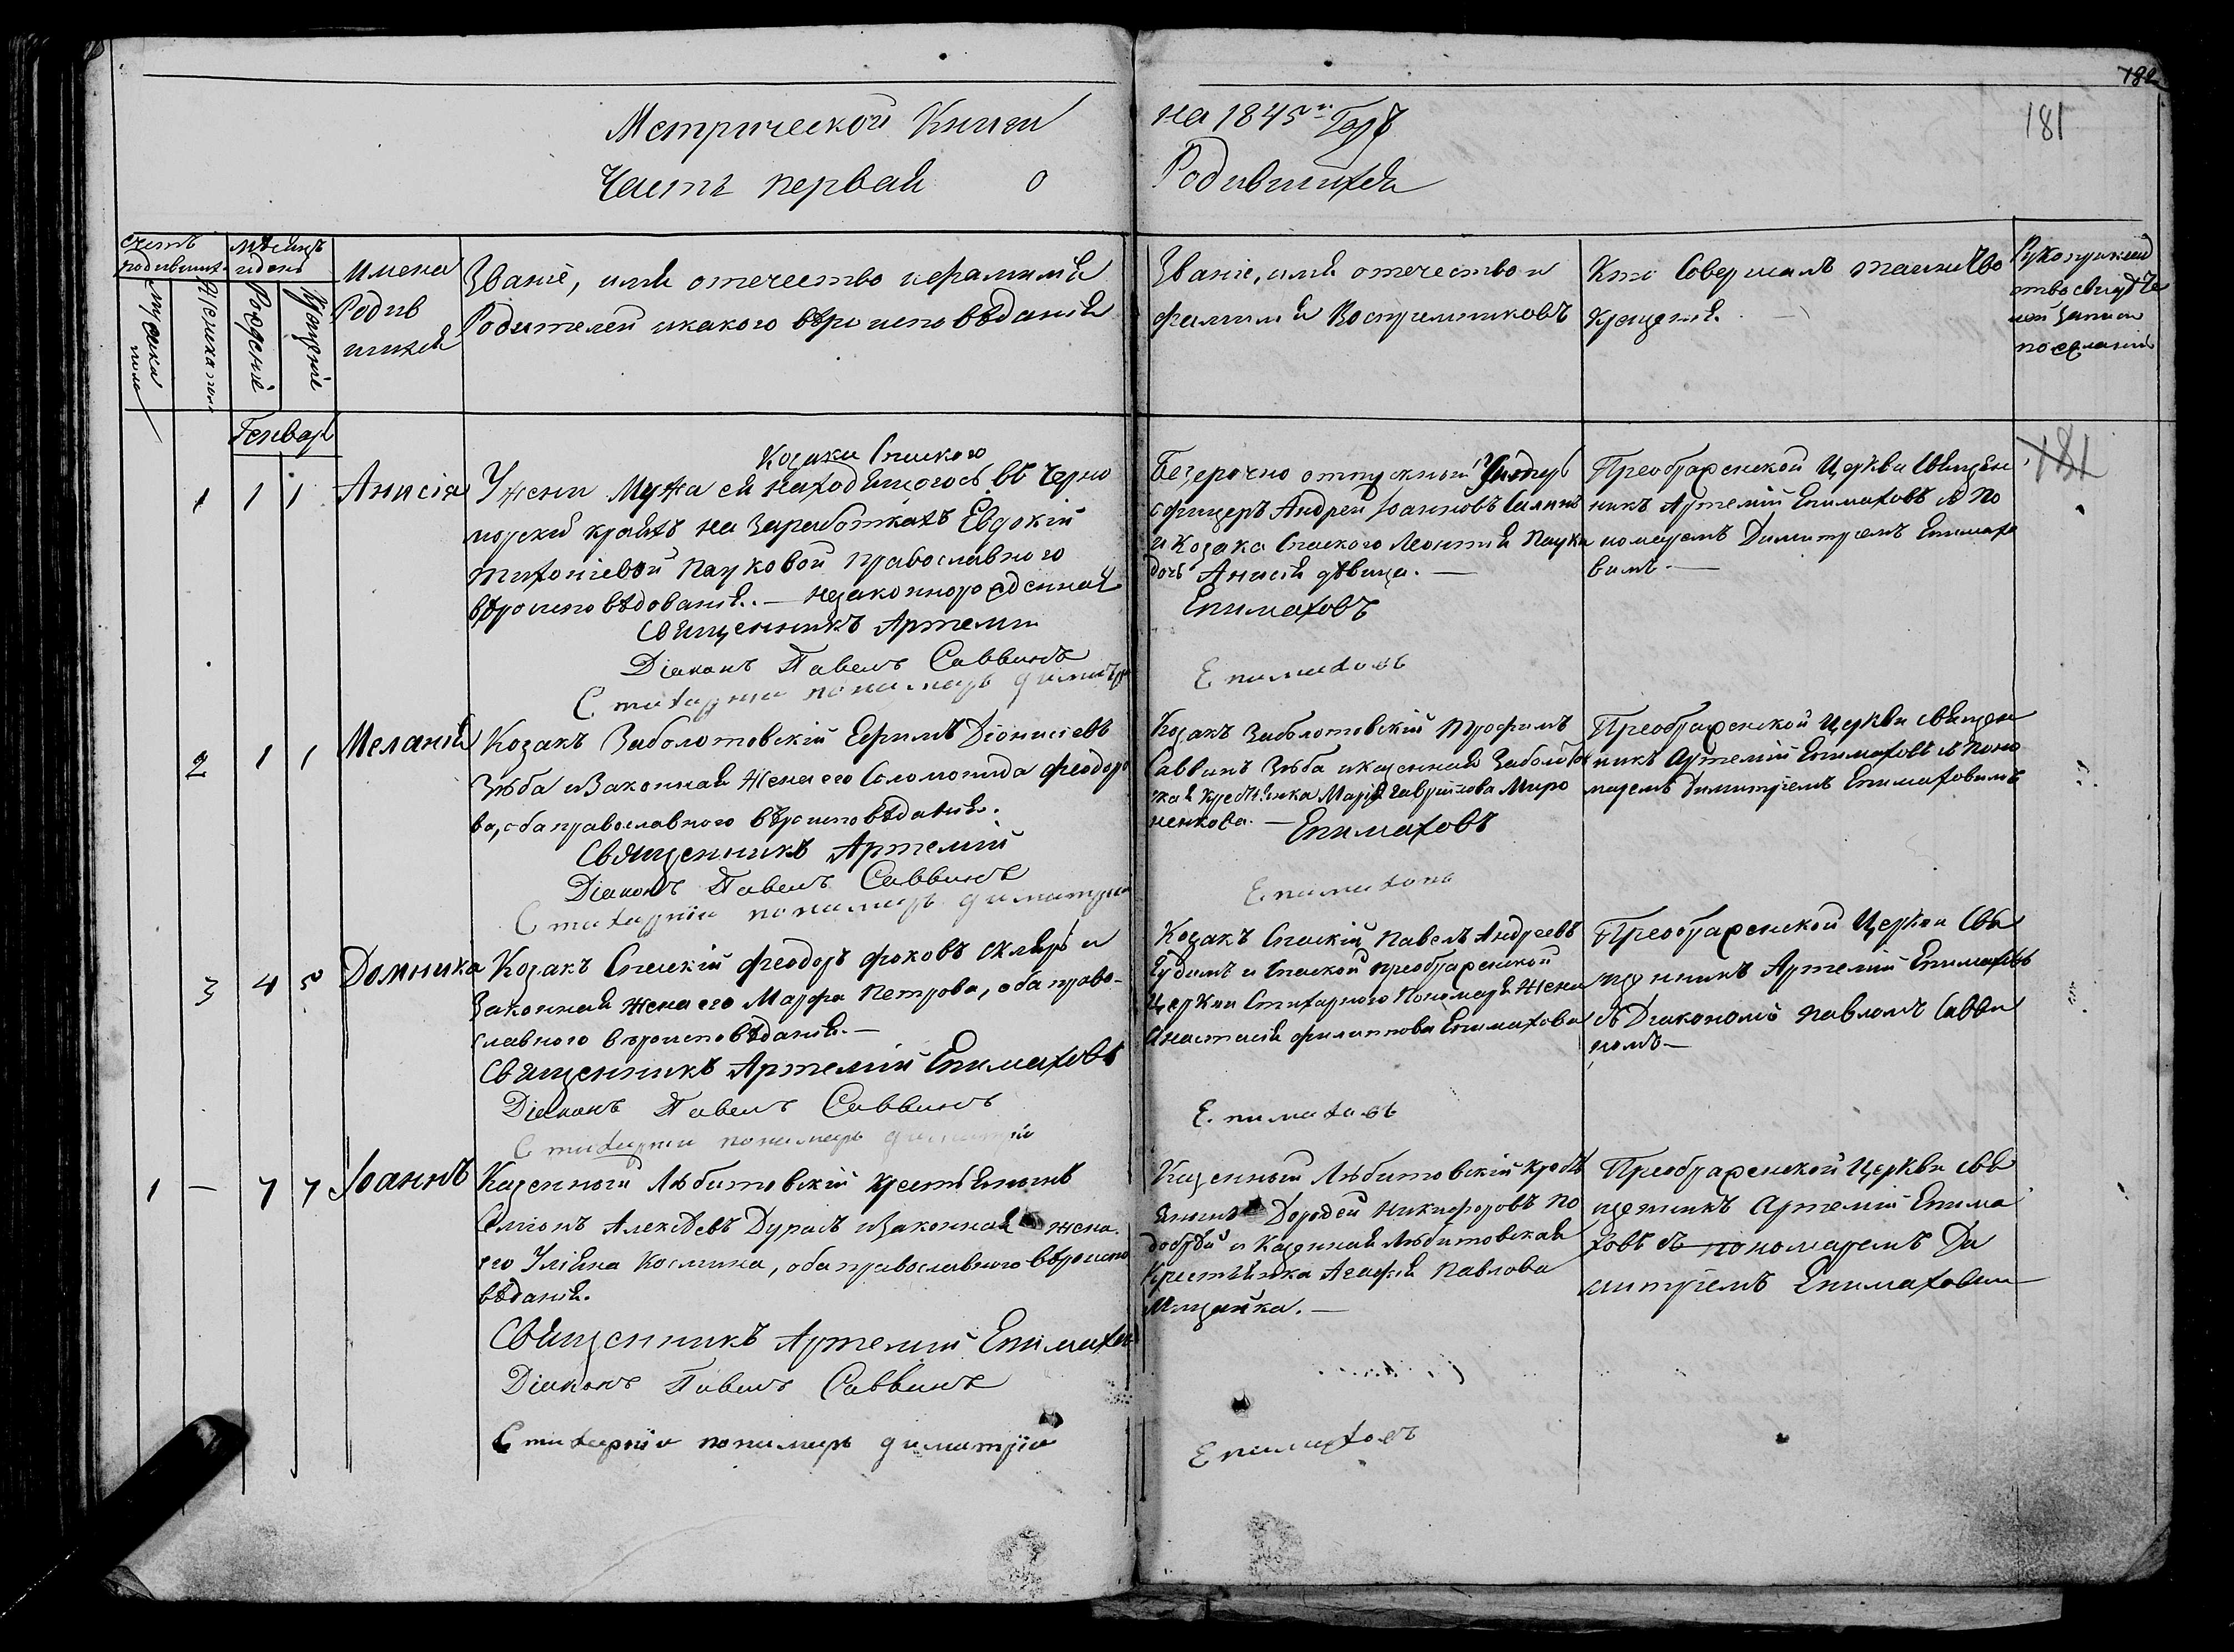 182
181
Метрической Книги на 1845й Годъ
Часть первая о Родившихся
счетъ родившихся
мѣсяцъ и день
мужска пола
женска пола
Рожденіе
Крещеніе
Имена
Родив
шихся
Званіе, имя отечество и фамилия
Родителей и какого вѣроисповѣдания
Званіе, имя отечество и
фамилия Восприемниковъ
Кто Совершалъ таинство
Крещения
Рукоприклад
ство свидѣте
лей записи
по желанию
Генварь
181
1 1 1
Анисія
Козака Спаского
У жены Мужа ея находящогось въ Черно
морский краяхъ на Заработкахъ Евдокія
тихоніевой Пауковой православного
вѣроисповѣдования. — незаконнорожденная
Священникъ Артемий
Діаконъ Павелъ Саввинъ
Стихарный пономарь димитрій
Безсрочно отпускный Унтеръ
офицеръ Андрей Іоанновъ
и Козака Спаского Леонтия Паука
дочь Анисія дѣвица. —
Епимаховъ
Епимаховъ
Преображенской Церкви Священ
никъ Артемій Епимаховъ съ По
номаремъ Димитріемъ Епимахо
вымъ. —
2 1 1
Меланія
Козакъ Заболотовскій Ефимъ Діонисіевъ
Зѣба и Законная жена его Соломонида Феодоро
ва, оба православного вѣроисповѣдания.
Священникъ Артемій
Діаконъ Павелъ Саввинъ
Стихарный пономарь димитрій
Козакъ Заболотовскій Трофимъ
Саввинъ Зѣба и казенная Заболотов
кая крестьянка Марія Гаврилова Миро
ненкова. —
Епимаховъ
Епимаховъ
Преображенской Церкви священ
никъ Артемій Епимаховъ съ Поно
маремъ Димитріемъ Епимаховымъ
3 4 5
Домника
Козакъ Спаский Феодоръ Фоковъ Скляръ и
Законная жена его Марфа Петрова, оба право-
славного вѣроисповѣдания. —
Священникъ Артемій Епимаховъ
Діаконъ Павелъ Саввинъ
Стихарный пономарь димитрій
Козакъ Спаскій Павелъ Андреевъ
Будимъ и Спаской преображенской
Церкви Стихарного Пономаря жена
Анастасія Филиппова Епимахова
Епимаховъ
Преображенской Церкви Свя
щенникъ Артемій Епимаховъ
съ Діакономъ Павломъ Савви
номъ —
1 — 7 7
Іоаннъ
Казенного Любитовскій крестьянинъ
Симіонъ Алексѣевъ Дуралъ и Законная жена
его Уліяна Космина, оба православного вѣроиспо
вѣдания.
Священникъ Артемий Епимаховъ
Діаконъ Павелъ Саввинъ
Стихарный пономарь димитрій
Казенный Любитовскій кресть
янинъ Дорофей Никифоровъ По
добрѣй и Казенная Любитовская
Крестьянка Агафія Павлова
Мощайка. —
Епимаховъ
Преображенской Церкви Свя
щенникъ Артемій Епима
ховъ съ пономаремъ Ди
митріемъ Епимаховым